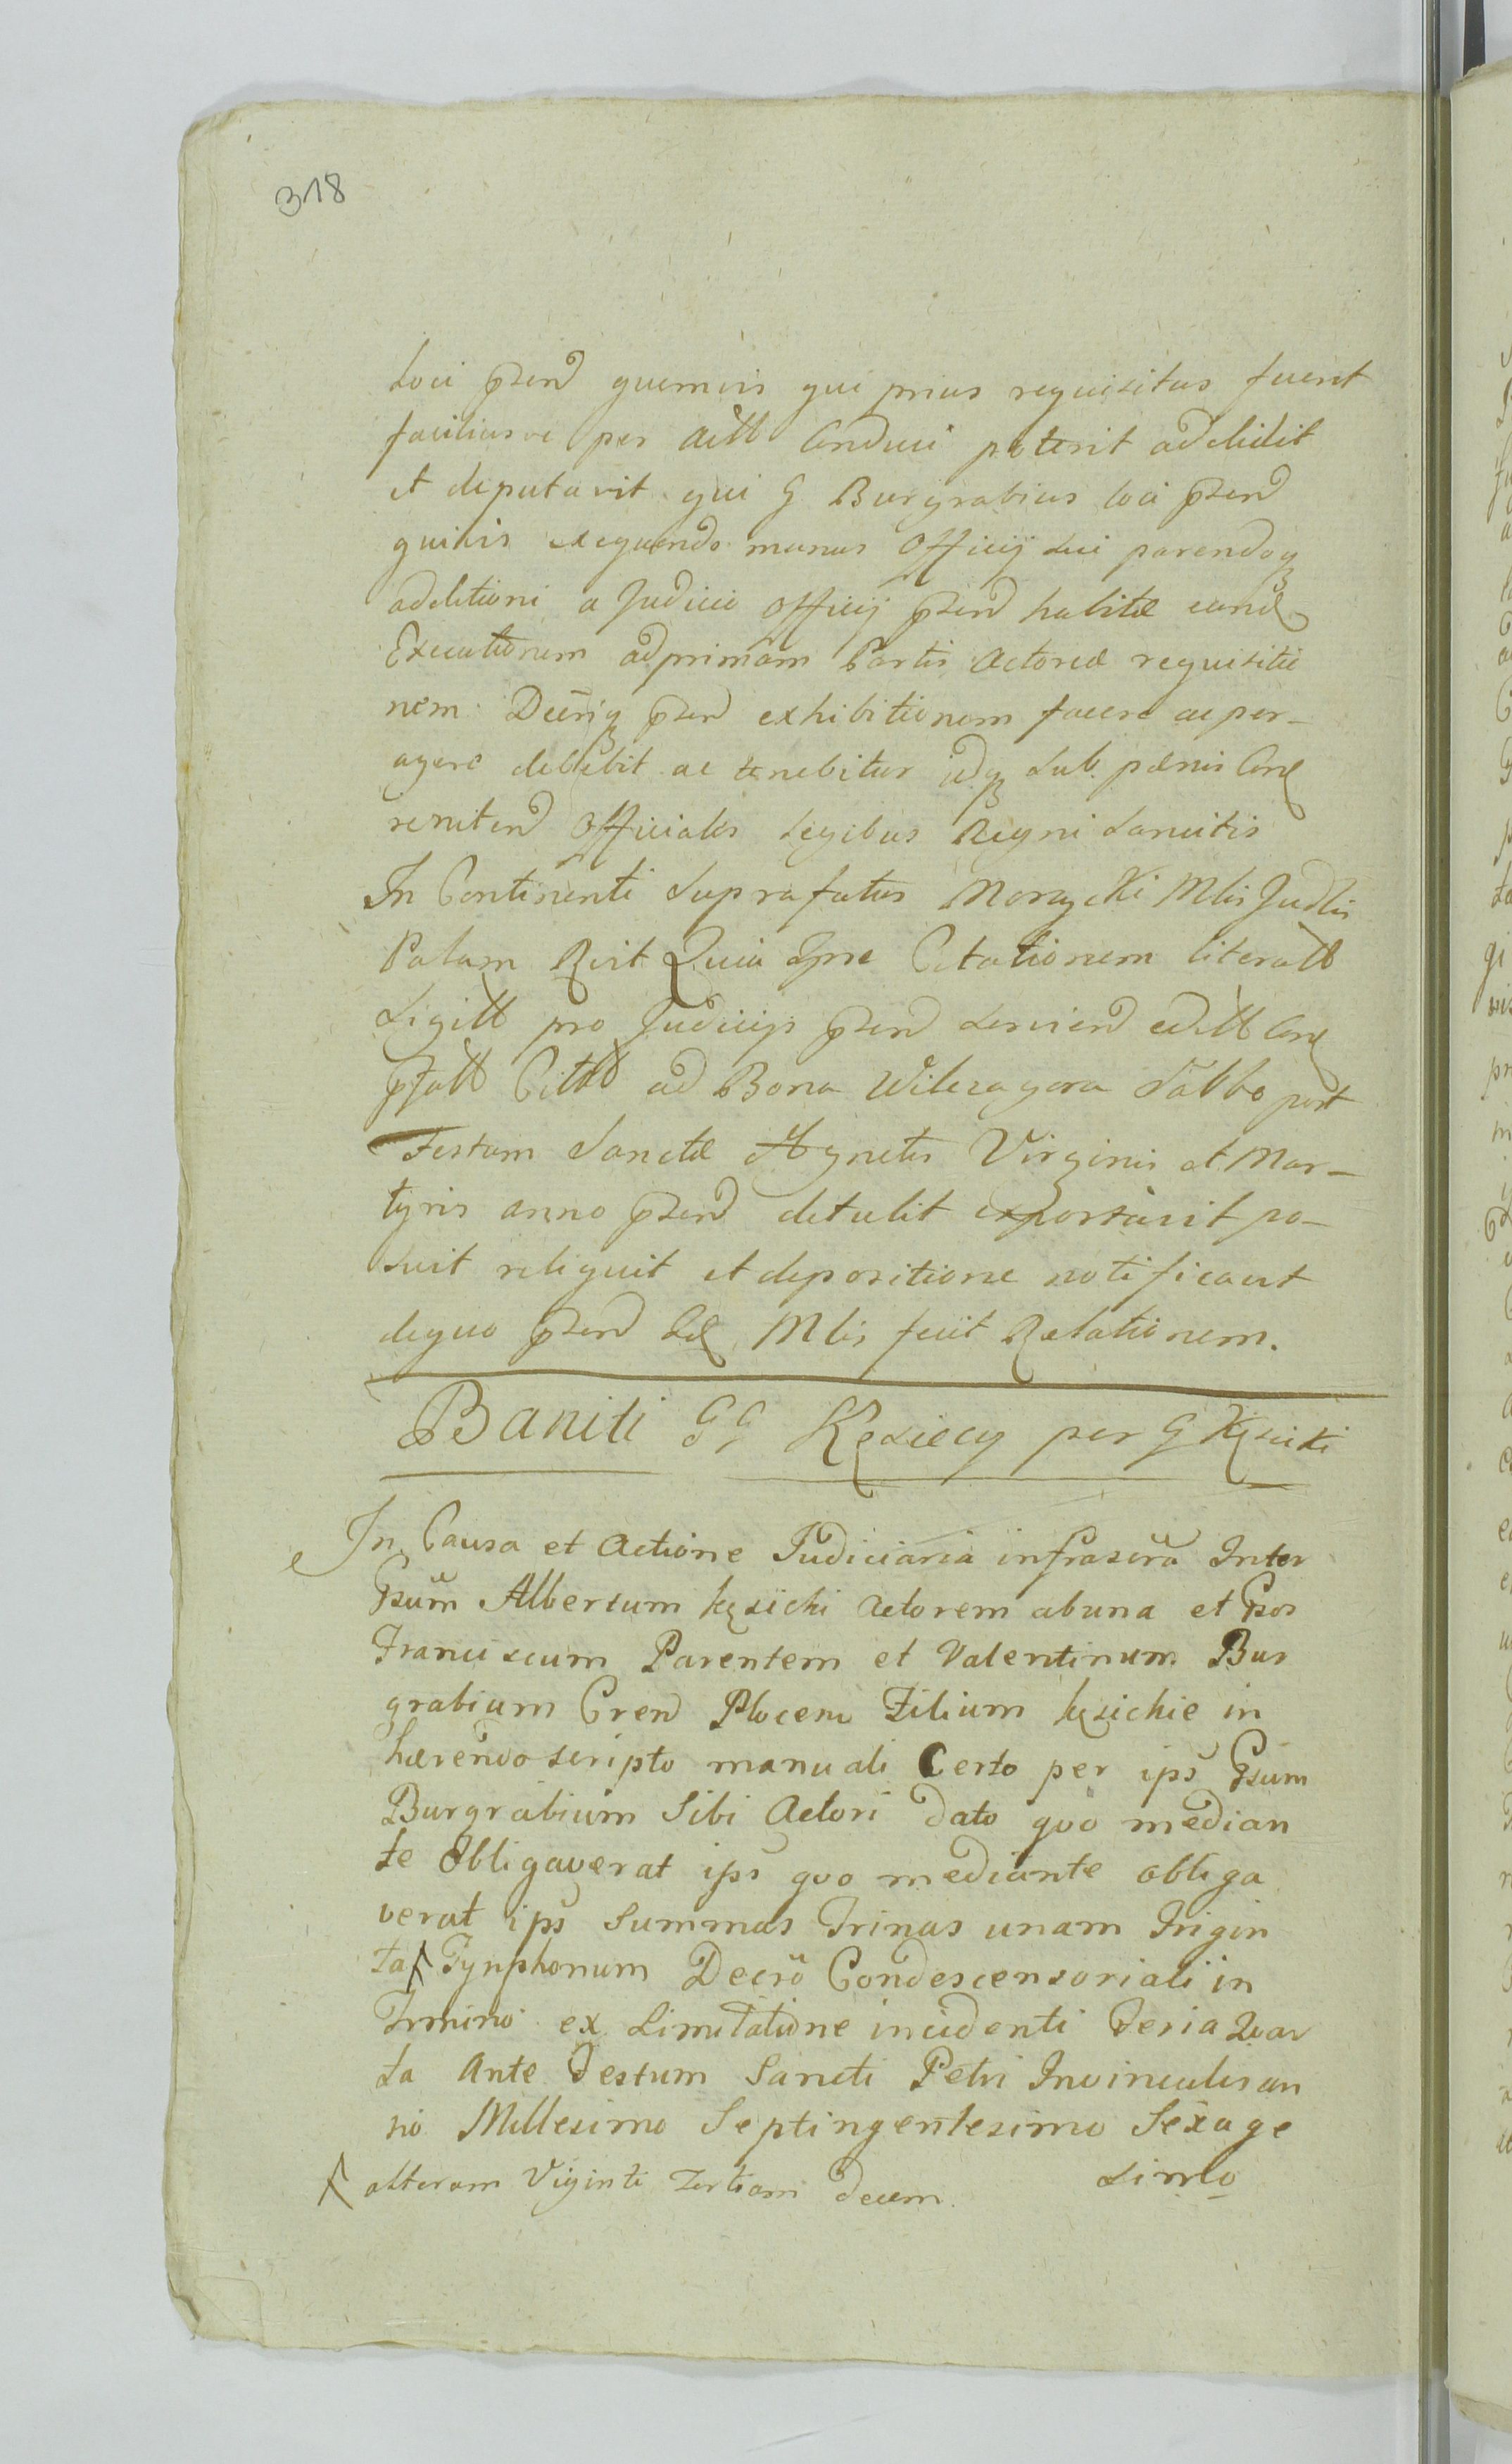 318
Loci prnd quemvis qui prius requisitus fuerit
faciliusve per actt conduci poterit addidit
et deputavit qui G Burgrabius loci prnd
quivis exequendo munus Officij sui parendoq
additioni a Judicio Officij prnd habitæ eand
Executionem ad primam Partis Actoreæ requisitio
nem Decriq prnd exhibitionem facere ac per-
agere debebit ac tenebitur idq sub pænis Con
reniten Officiales Legibus Regni sancitis
In Continenti suprafatus Mlis Judlis
Palam Rzit Quia Citationem literatt
Sigitt pro Judicijs prnd servien editt Con
pfatt Citatt ad Bona Wilczagora Sabbo post
Festum Sanctæ Agnetis Virginis et Mar-
tyris anno prnd detulit exportavit po-
suit reliquit et depositione notificavit
dequo prnd Mlis fecit Relationem.
Baniti GG Kęsiccy per G Kęsicki
In Causa et Actione Judiciaria infrascra Inter
Gsum Albertum Kęsicki Actorem abuna et Gsos
Franciscum Parentem et Valentinum Bur
grabium Cren Plocens Filium Kęsickie in
hærendo scripto manuali Certo per ips Gsum
Burgrabium Sibi Actori dato quo median
te Obligaverat ips quo mediante obliga
verat ips Summas Trinas unam Trigin
ta Tynphonum Decro Condescensoriali in
Trmino ex Limitatione incidenti Feria Quar
ta Ante Festum Sancti Petri Invinculis an
no Millesimo Septingentesimo Sexage
simo
alteram Viginti Tertiam decem.